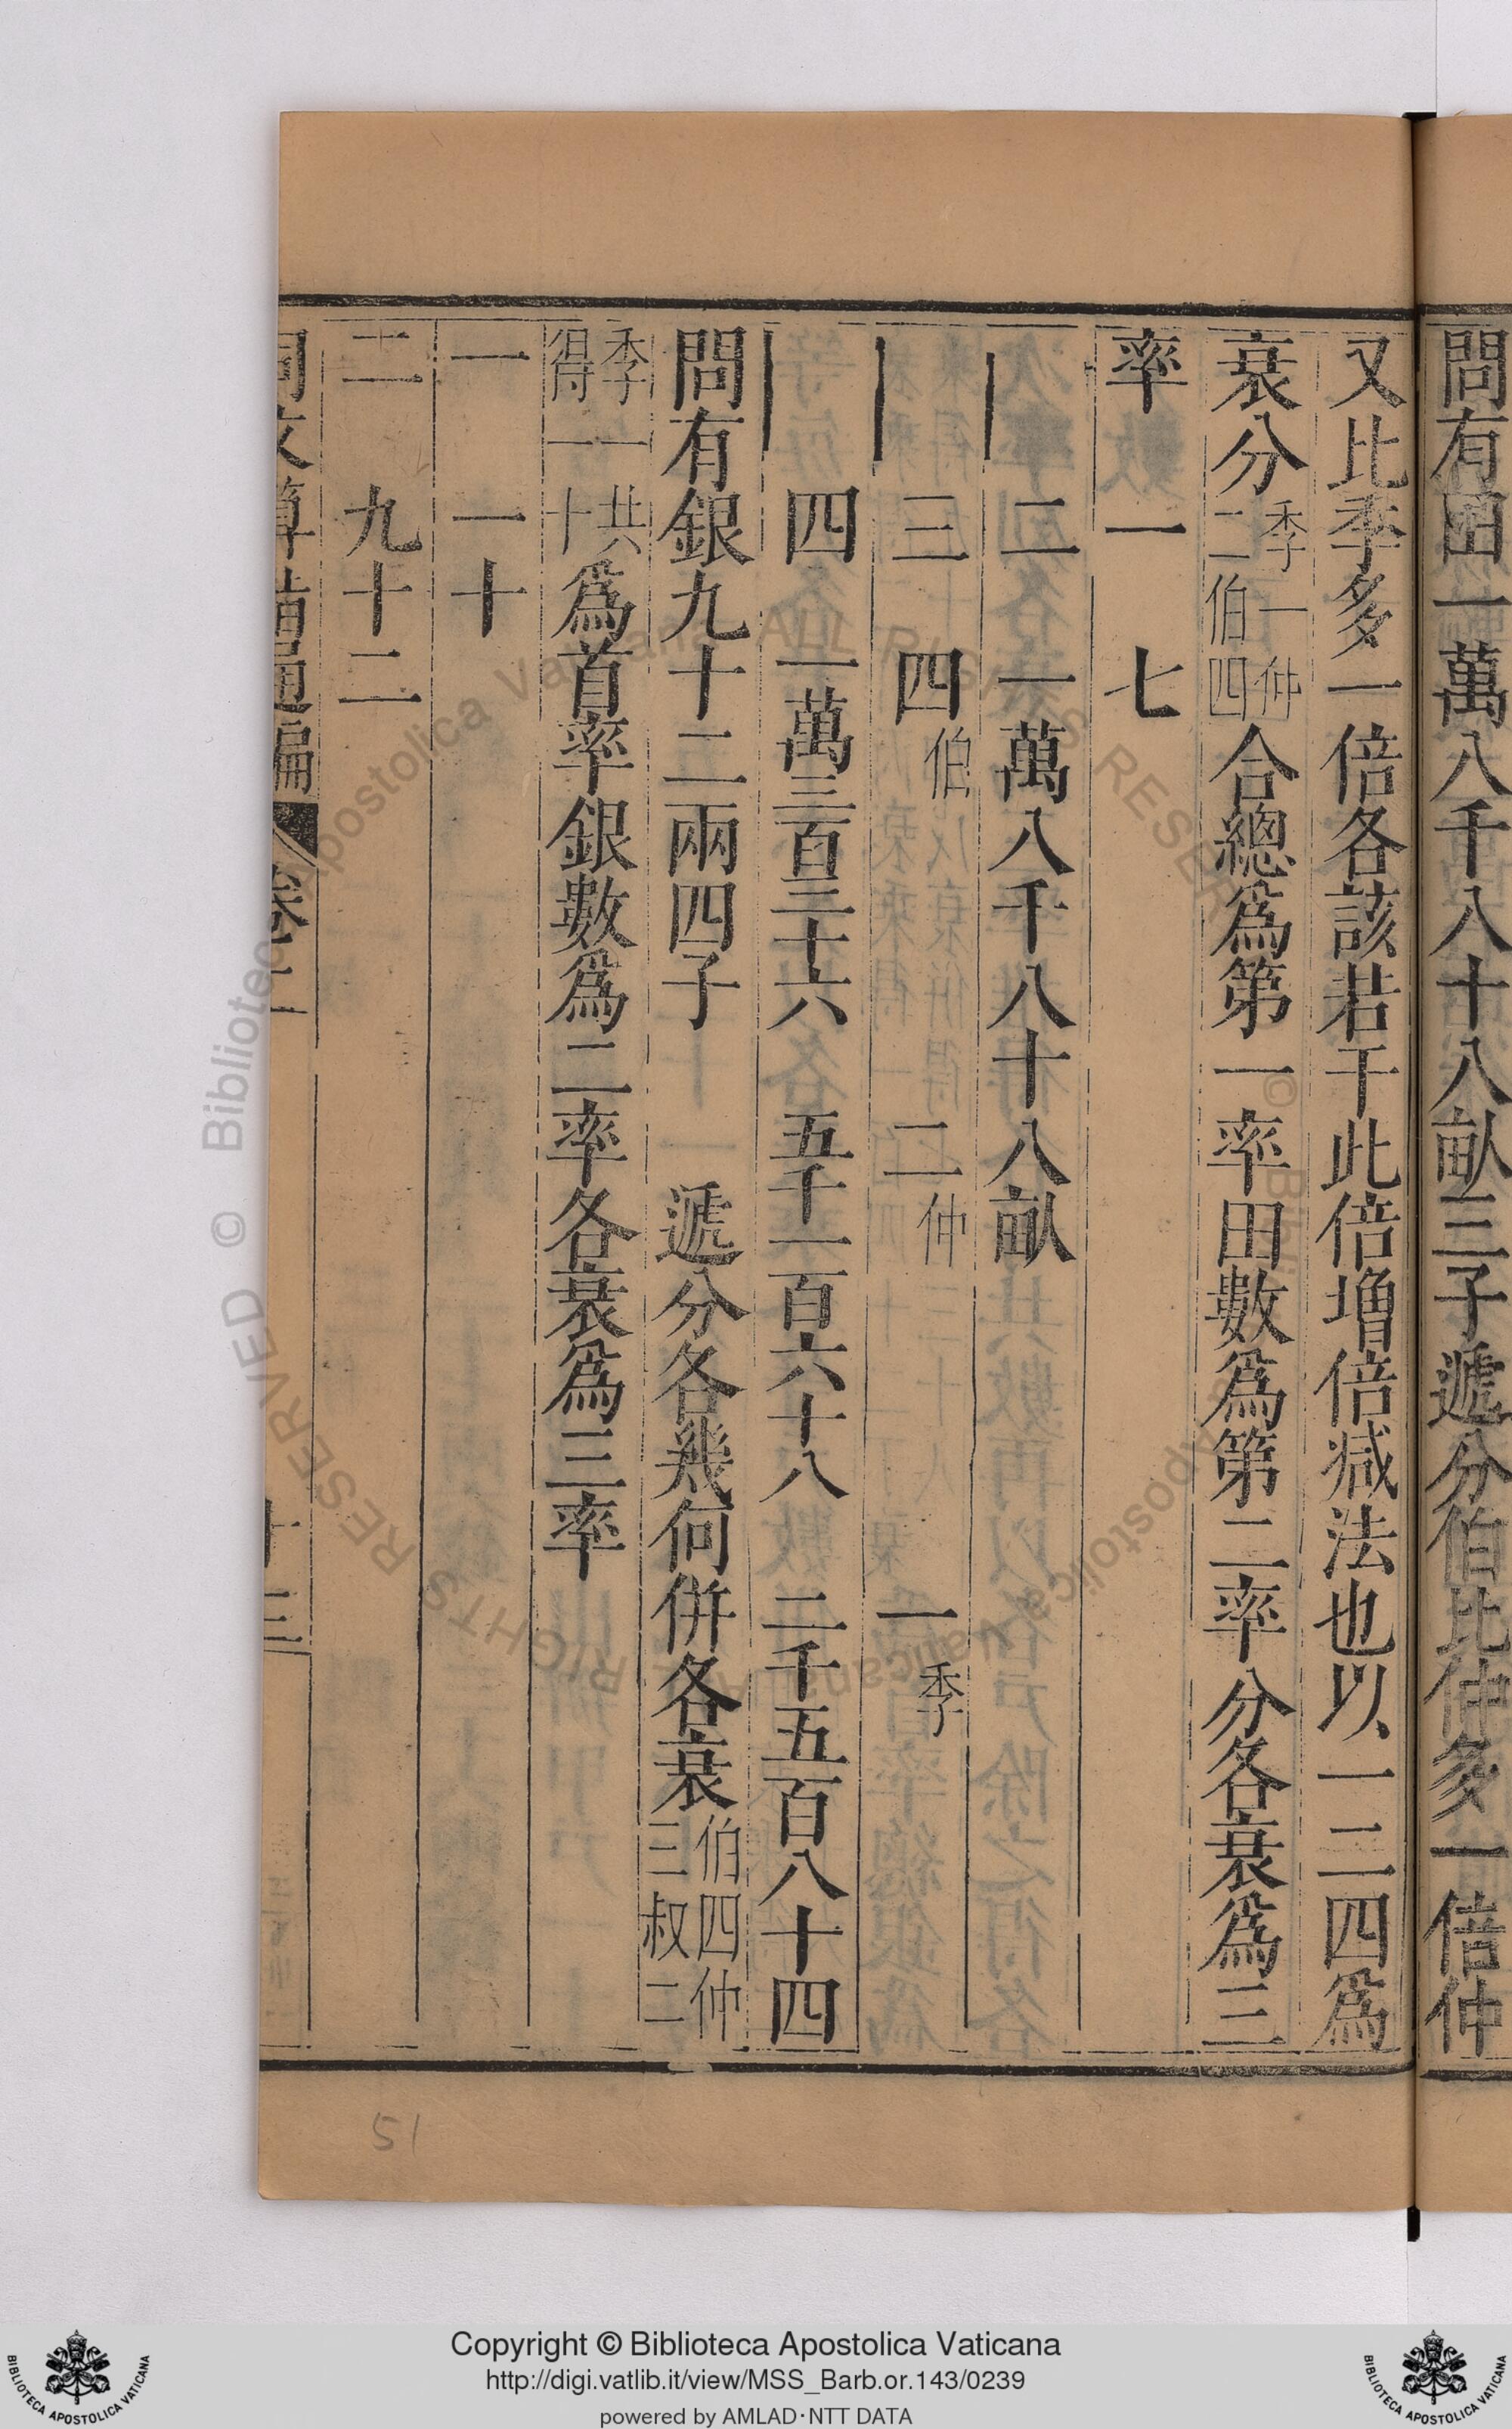 問有田一萬八千八十八畝三子遞分伯比仲多一倍仲
又比季多一倍各該若干此倍增倍减法也以一二四爲
衰分季一仲二伯四合總爲第一率田數爲第二率分各衰爲三
率 一 七
二 一萬八千八十八畝
三 四伯 二仲 一季
四 一萬三百三十六 五千一百六十八 二千五百八十四
問有銀九十二兩四子 遞分各幾何併各衰伯四仲三叔二
季一共得一十爲首率銀數爲二率各衰爲三率
一 一十
二 九十二
同文算指通編 卷二 十三
51
© Biblioteca Apostolica Vaticana ALL RIGHTS RESERVED
Copyright © Biblioteca Apostolica Vaticana
http://digi.vatlib.it/view/MSS_Barb.or.143/0239
powered by AMLAD·NTT DATA
BIBLIOTECA APOSTOLICA VATICANA
BIBLIOTECA APOSTOLICA VATICANA